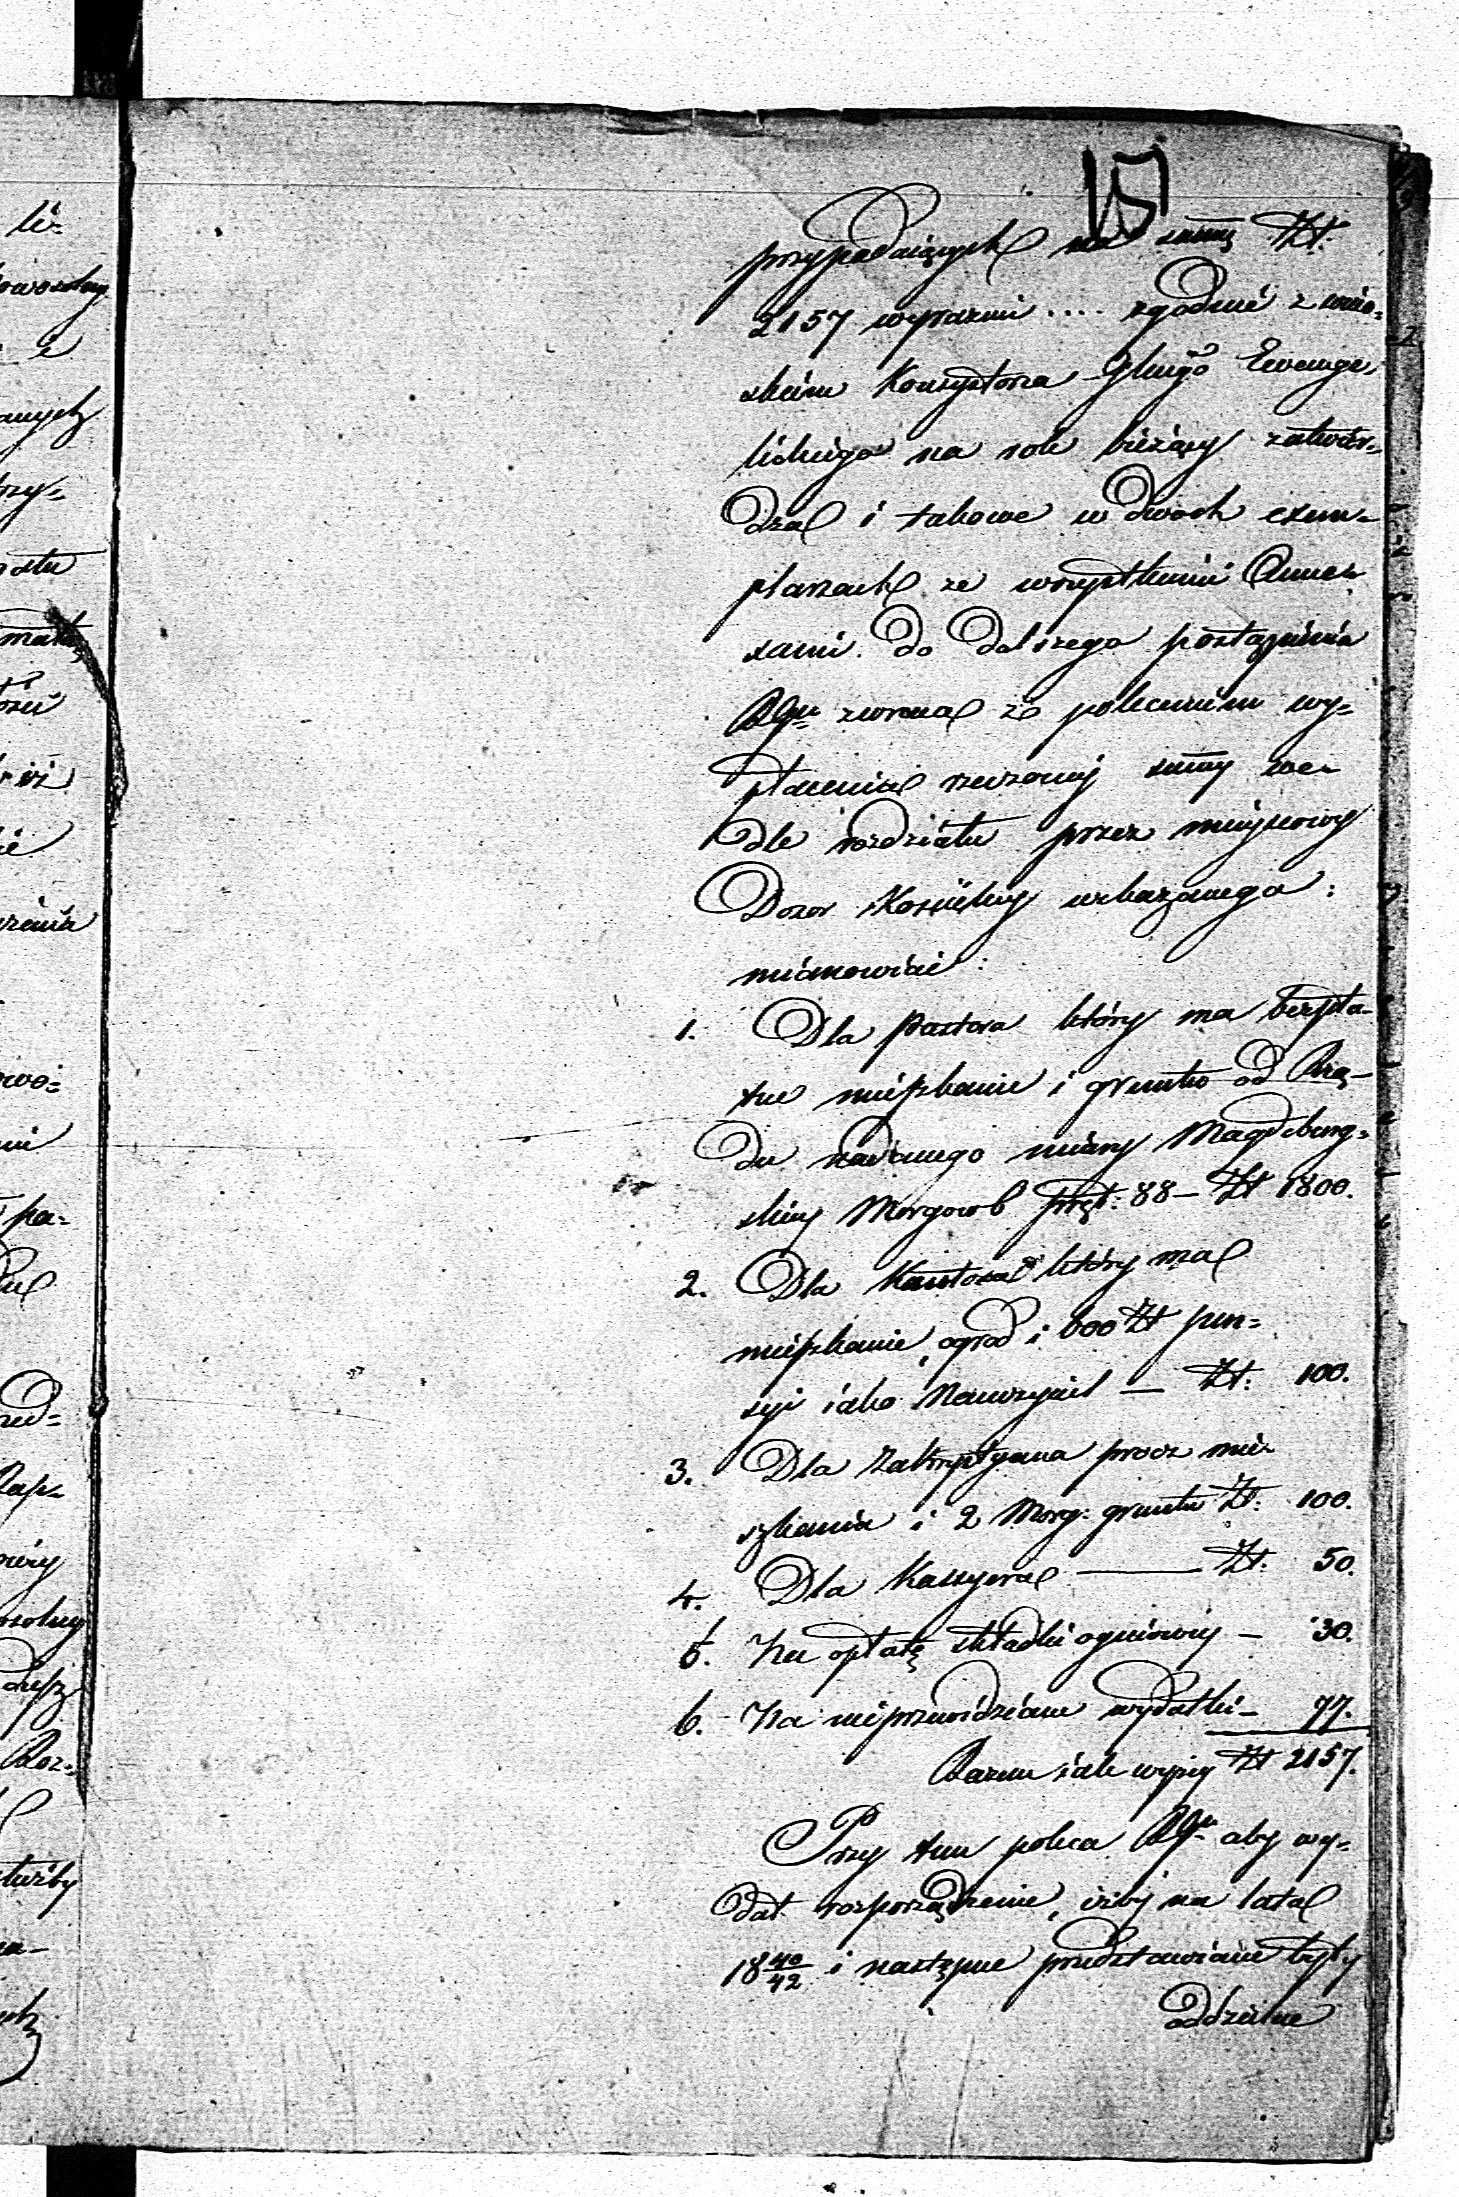 przypadaiących na summę Złt:
2157 wyraźnie .... zgodnie z wnio-
skiem Konsystorza Glnego Ewange-
lickiego na rok bieżący zatwier-
dza i takowe w dwoch exem-
plarzach ze wszystkiemi Annex-
sami do dalszego postąpienia
zwraca ze poleceniem wy-
płacenia rzeczonej summy we-
dle rozdziału przez mieyscowy
Dozor Kościelny wskazanego:
mianowicie:
1. Dla Pastora który ma bezpła-
tne mieszkanie i gruntu od Rzą-
du nadanego miary Magdeburg-
skiey Morgow 6 pręt: 88 – Złt 1800.
2. Dla Kantora który ma
mieszkanie, ogrod i 600 Złt pen-
syi iako Nauczyciel — Złt: 100.
3. Dla Zakrystyana procz mie-
szkania i 2 Morg: gruntu Zł: 100.
4. Dla Kassyera — Zł. 50.
5. Na opłatę składki ogniowey – 30.
6. Na nieprzewidziane wydatki – 77.
Razem iak wyżey Złt 2157.
Przy tem poleca aby wy-
dał rozporządzenie, iżby na lata
18 40/42 i następne przedstawione były
oddzielne
li-
e
anych
rzy-
ie
pa-
Roz-
służby